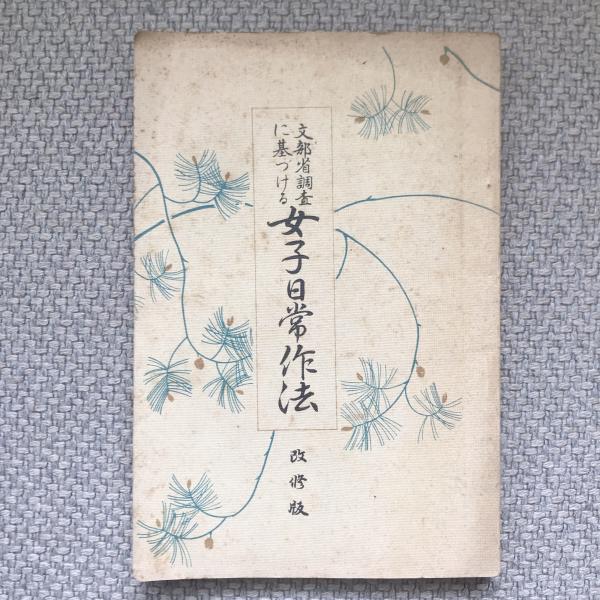 文部省調査
に基づける
女子日常作法
改修版